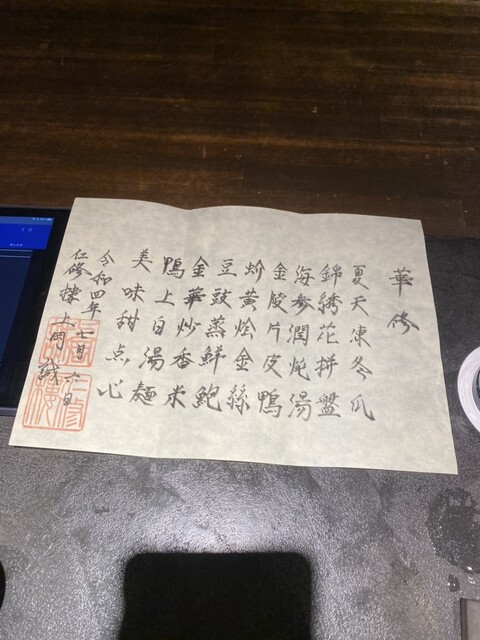 華修
夏天凍冬瓜
錦綉花拼盤
海参潤炖湯
金陵片皮鴨
蚧黄烩金絲
豆豉蒸鮮鮑
金華炒香米
鴨上白湯麺
美味甜点心
令和四年七月六日
仁修樓上岡誠